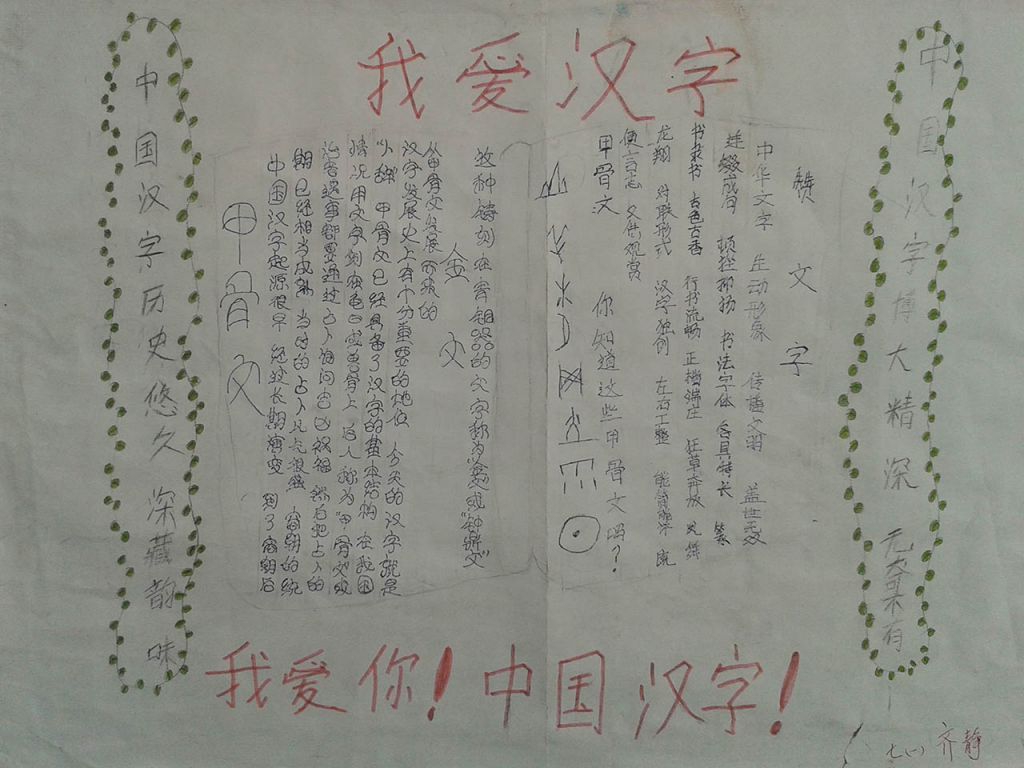 我爱汉字
中国汉字历史悠久深藏韵味
甲骨文
中国汉字起源很早 经较长期演变 到了商朝后
期已经相当成熟 当时的占卜风气很盛 商朝的统
治者遇事都要通过占卜询问吉凶祸福 然后把占卜的
情况用文字刻在龟甲或兽骨上 后人称为“甲骨文”或
“卜辞” 甲骨文已经具备了汉字的基本结构 在我国
汉字发展史上有十分重要的地位 今天的汉字就是
从甲骨文发展而来的
金文
这种铸刻在青铜器的文字称为金文或“钟鼎文”
赞文字
中华文字 生动形象 传播文明 盖世无双
顿挫抑扬 书法字体 各具特长 篆
书隶书 古色古香 行书流畅 正楷端庄 狂草奔放 凤舞
龙翔 对联形式 汉字独创 左右工整 既
便言志 又供观赏
甲骨文 你知道这些甲骨文吗?
中国汉字博大精深
我爱你!中国汉字!
七(一) 齐静